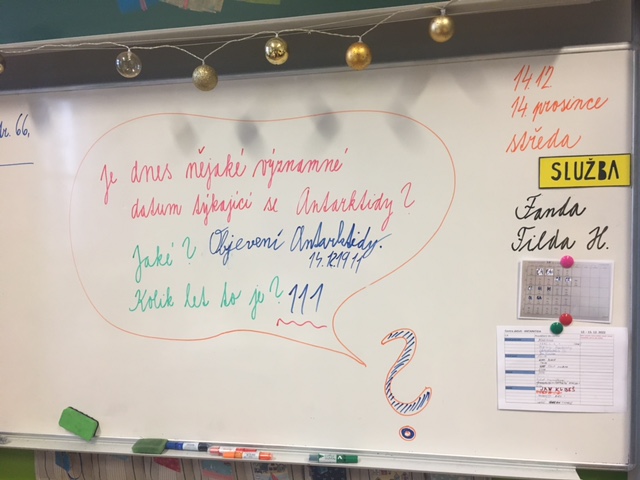 str. 66,
je dnes nějaké významné
datum týkající se Antarktidy?
Jaké? Objevení Antarktidy.
14.12.1911
Kolik let to je? 111
?
14.12.
14. prosince
středa
SLUŽBA
Fanda
Tilda H.